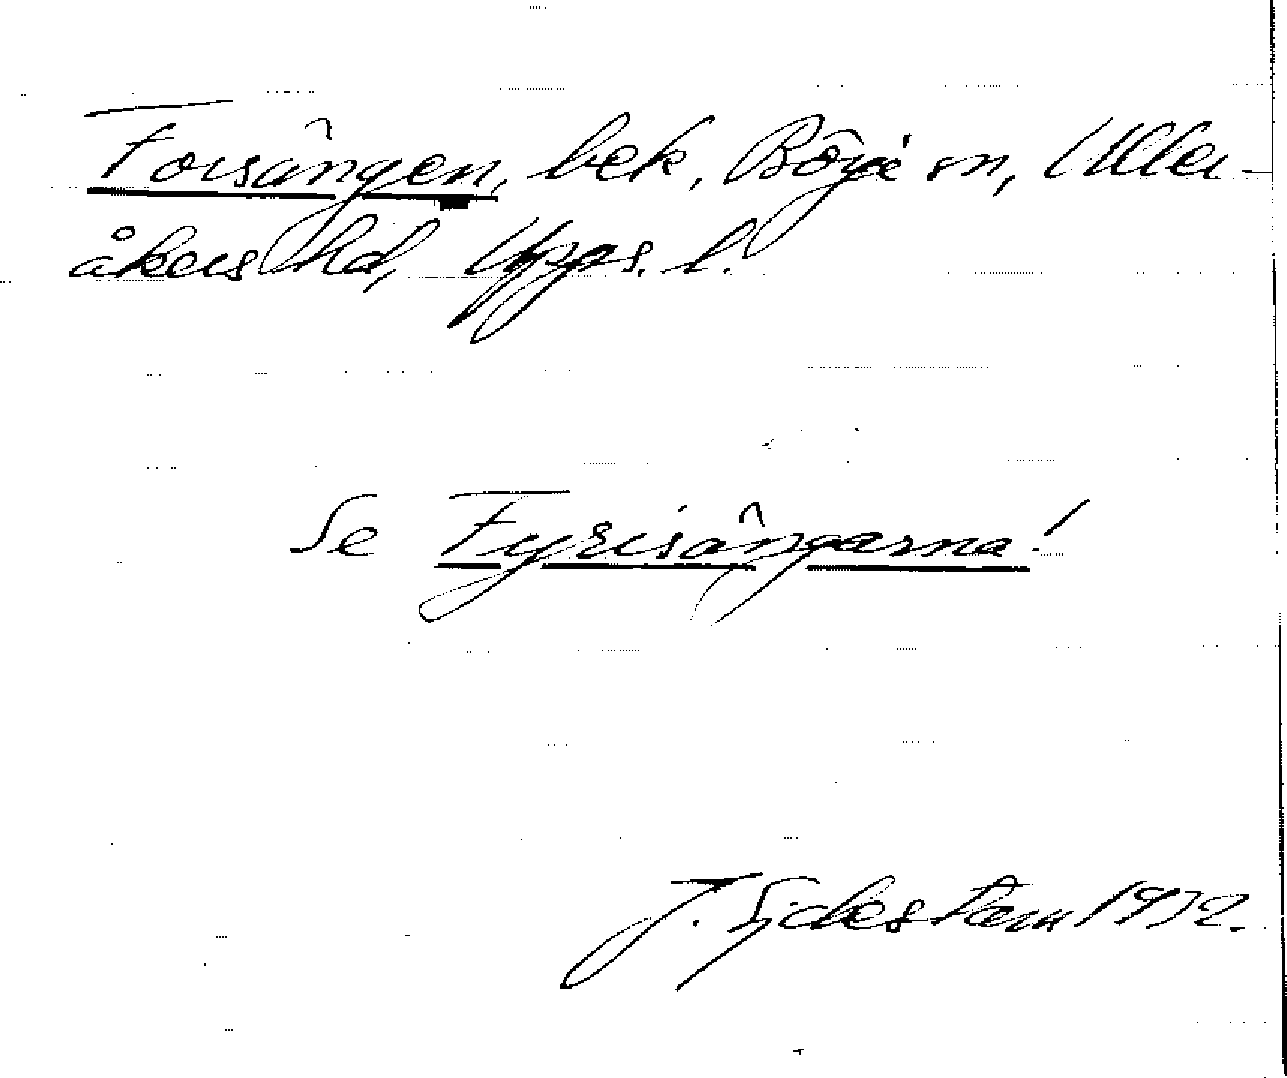 Forsängen, bek. Börje sn, Uller-
åkers hd, Upps. l.
Se Fyrisängarna!
J. Sjdestam 1932.